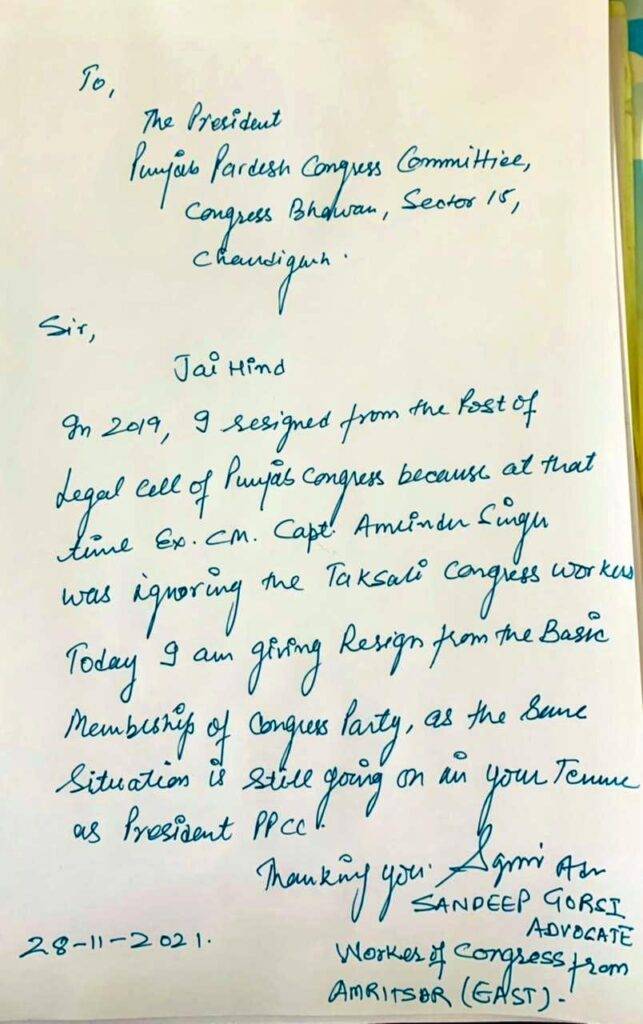 To,
The President
Punjab Pardesh Congress Committiee,
Congress Bhawan, Sector 15,
Chandigarh.
Sir,
Jai Hind
In 2019, I resigned from the Post of
Legal Cell of Punjab Congress because at that
time Ex. CM. Capt. Amrinder Singh
was ignoring the Taksali Congress workers
Today I am giving Resign from the Basic
Membership of Congress Party, as the Same
Situation is Still going on in your Tenure
as President PPCC.
Thanking you.
SANDEEP GORSI
ADVOCATE
28-11-2021.
Worker of Congress from
AMRITSAR (EAST)-